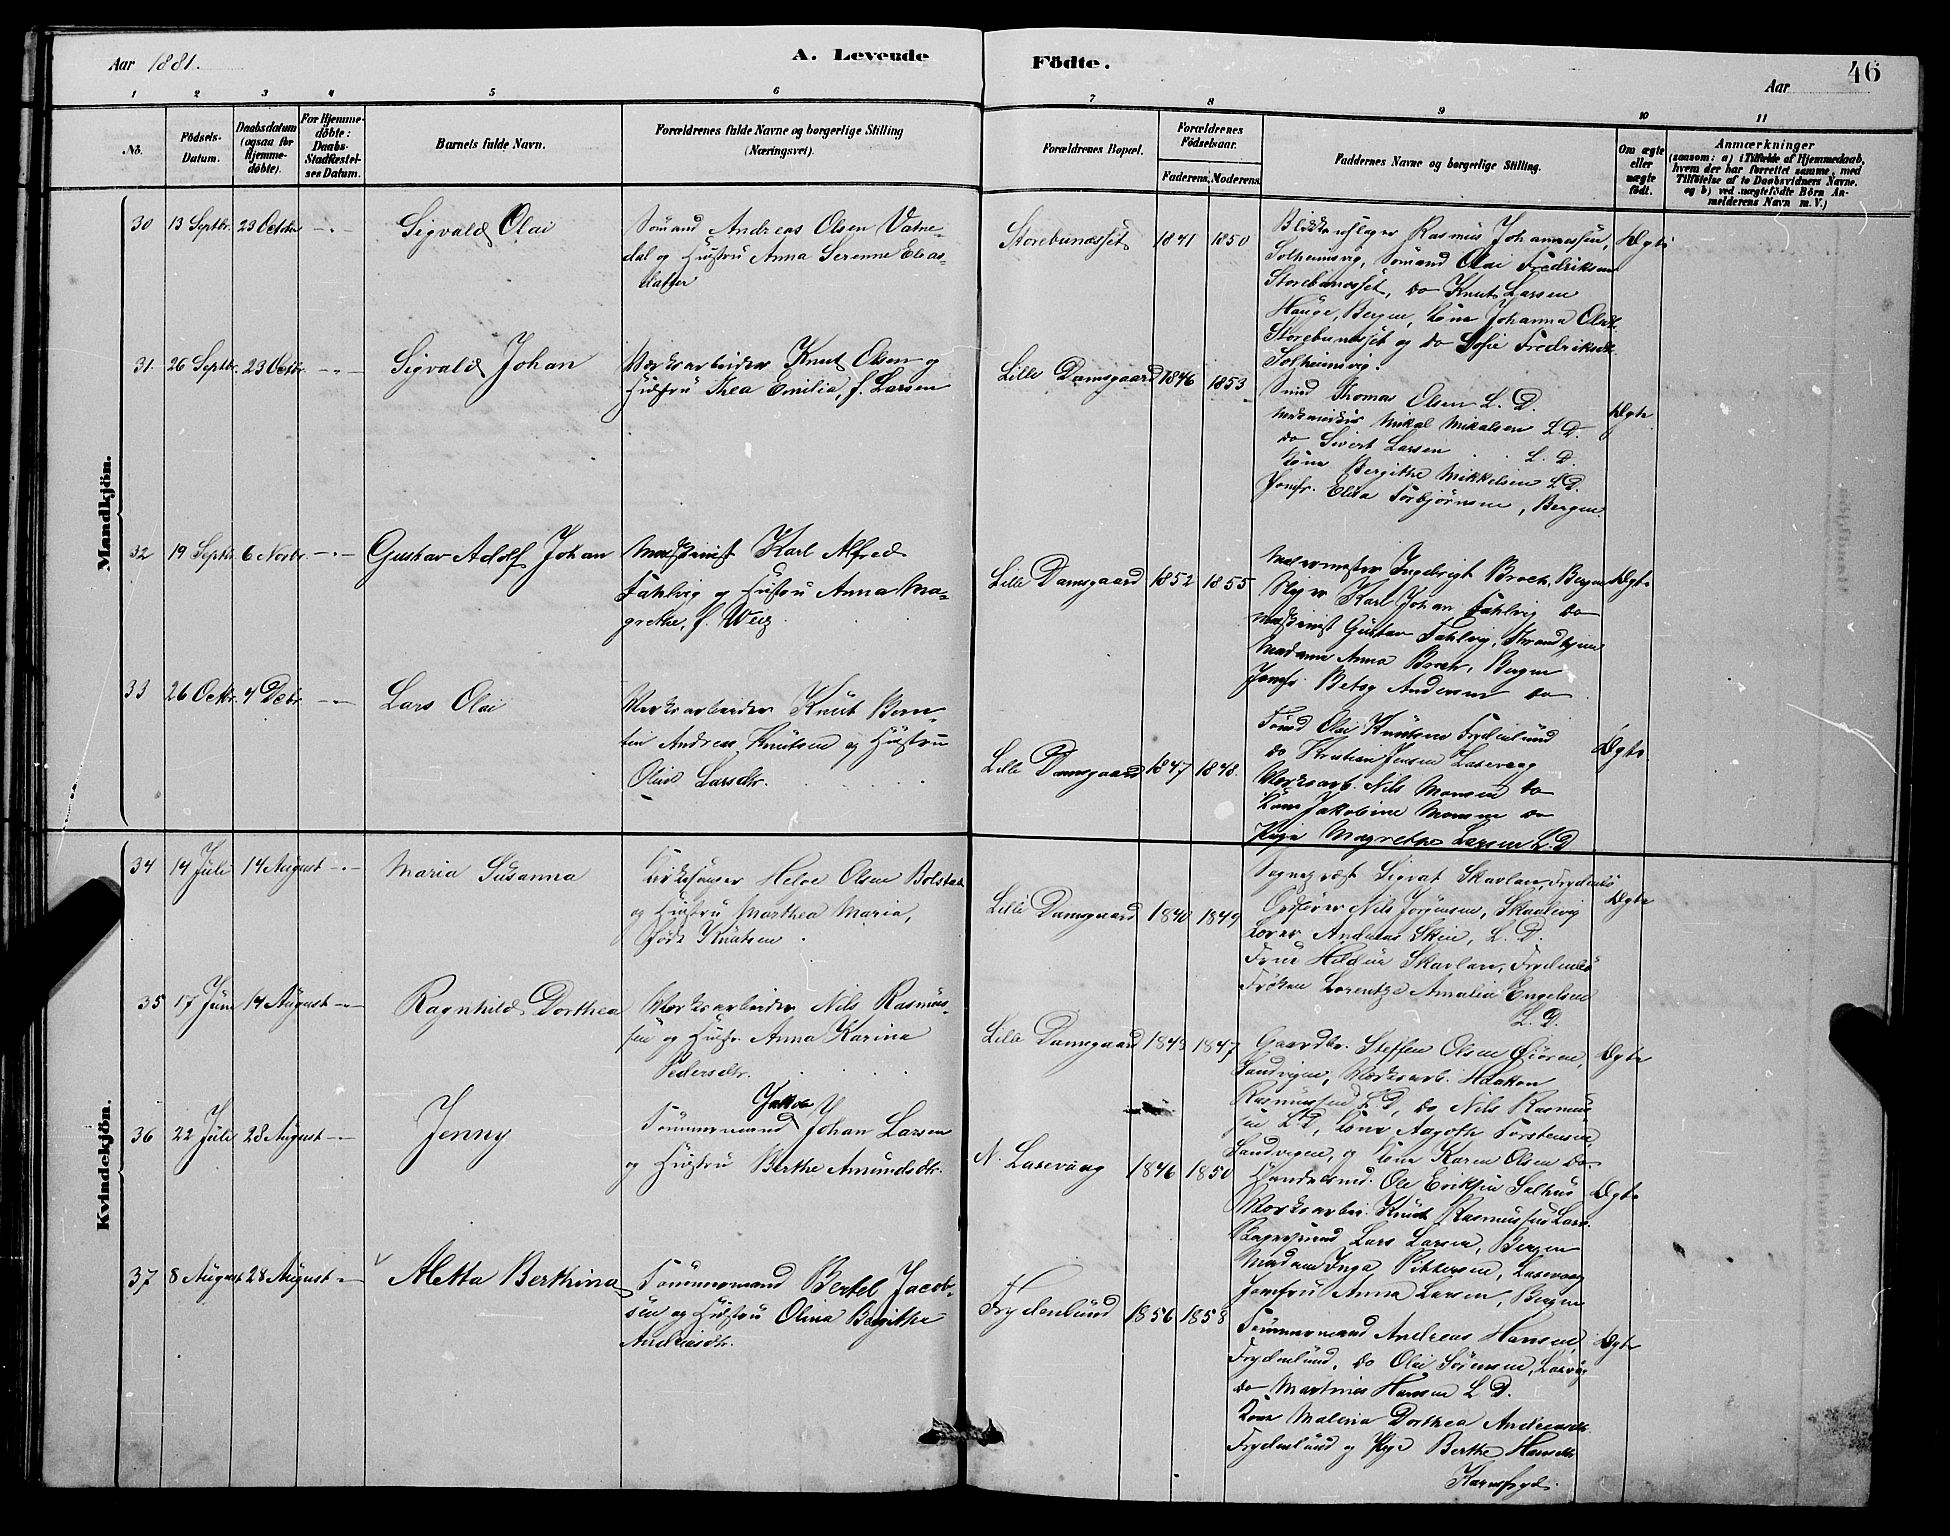 Aar 1881.
A. Levende
Födte.
Aar
46
1 2 3 4 5 6 7 8 9 10 11
No.
Födsels-
Datum.
Daabsdatum
(ogsaa for
Hjemme-
döbte).
For Hjemme-
döbte:
Daabs-
Stadfæstel-
ses Datum.
Barnets fulde Navn.
Forældrenes fulde Navne og borgerlige Stilling
(Næringsvei).
Forældrenes Bopæl.
Forældrenes
Födselsaar.
Faderens. Moderens.
Faddernes Navne og borgerlige Stilling.
Om ægte
eller
uægte
födt.
Anmærkninger
(saasom: a) i Tilfælde af Hjemmedaab,
hvem der har forrettet samme, med
Tilföielse af to Daabsvidners Navne.
og b) ved uægtefödte Börn An-
melderens Navn m. V.)
Mandkjön.
30 13 Septbr. 23 Octbr. Sigvald Olai
Sömand Andreas Olsen Vatne-
dal og Hustru Anna Serenne Elias-
datter
Storebundsset 1841 1850
Rasmus Johannessen,
Solheimsvig, Sömand Olai Fredriksen
Storebundsset, do Knut Larsen
Hauge, Bergen, Kone Johanna Olsdtr.
Storebundsset og do Sofie Fredriksdtr.
Solheimsvig.
Ægte
31 26 Septbr. 23 Octbr. Sigvald Johan
Værksarbeider Knut Olsen og
Hustru Thea Emilia, f. Larsen
Lille Damsgaard 1846 1853
Smed Thomas Olsen L. D.
Mikal Mikalsen L D.
do Sivert Larsen L. D.
Kone Bergithe Mikkelsen L D.
Jomfr. Elisa Torbjörnsen, Bergen.
Ægte
32 19 Septbr. 6 Novbr. Gustav Adolf Johan
Maskinist Karl Alfred
Fahlvig og Hustru Anna Ma-
grethe, f. Weiz
Lille Damsgaard 1852 1855
Malermester Ingebrigt Broch, Bergen
Karl Johan Fahlvig do
Maskinist Gustav Fahlvig,
Madame Anna Broch, Bergen
Jomfr Betsy Andersen do
Ægte
33 26 Octbr. 4 Decbr. Lars Olai
Værksarbeider Knut Bern-
tin Andreas Knutsen og Hustru
Oline Larsdtr.
Lille Damsgaard 1847 1848.
Olai Knutsen Frydenlund
do Kristian Jensen Laxevaag
Værksarb. Nils Monsen do
Kone Jakobine Monsen do
Pige Magrethe Larsen L. D
Ægte
Kvindekjön.
34 14 Juli 14 August Maria Susanna
Kirkesanger Heloe Olsen Bolstad
og Hustru Marthea Maria,
född Knutsen
Lille Damsgaard 1840 1849
Sognepræst Sigvat Skavlan, Frydenbö
Nils Jörgensen, Skaalevig
Lærer Andreas Skeie, L. D.
Frue Hildur Skavlan, Frydenbö
Fröken Lorentze Amalia Engelsen
L. D.
Ægte
35 17 Juni 14 August Ragnhild Dorthea
Værksarbeider Nils Rasmus-
sen og Hustr. Anna Karina
Pedersdtr.
Lille Damsgaard 1843 1847
Gaardbr. Steffen Olsen
Sandvigen, Værksarb. Haakon
Rasmussen L D, do Nils Rasmus-
sen L D, Kone Aagoth Torstensen,
Sandvigen, og Kone Karen Olsen do.
Ægte
36 22 Juli 28 August Jenny
Jakob
Tömmermand Johan Larsen
og Hustru Berthe Amundsdtr.
N. Laxevaag 1846 1850
Handelsmd. Ole Eriksen Salhus
Værksarbei. Knut Rasmussen Laxv.
Bagersvend Lars Larsen, Bergen
Madam Inga Pettersen, Laxevaag
Jomfru Anna Larsen, Bergen
Ægte
37 8 August 28 August Aletta Berthina
Tömmermand Bertel Jacob-
sen og Hustru Olina Bergithe
Andreasdtr.
Frydenlund 1856 1858
Tömmermand Andreas Hansen,
Frydenlund, do Olai Sörensen, Laxvåg
do Martinus Hansen L D.
Kone Malena Dorthea Andreasdtr.
Frydenlund og Pige Berthe Hansdtr
Ægte